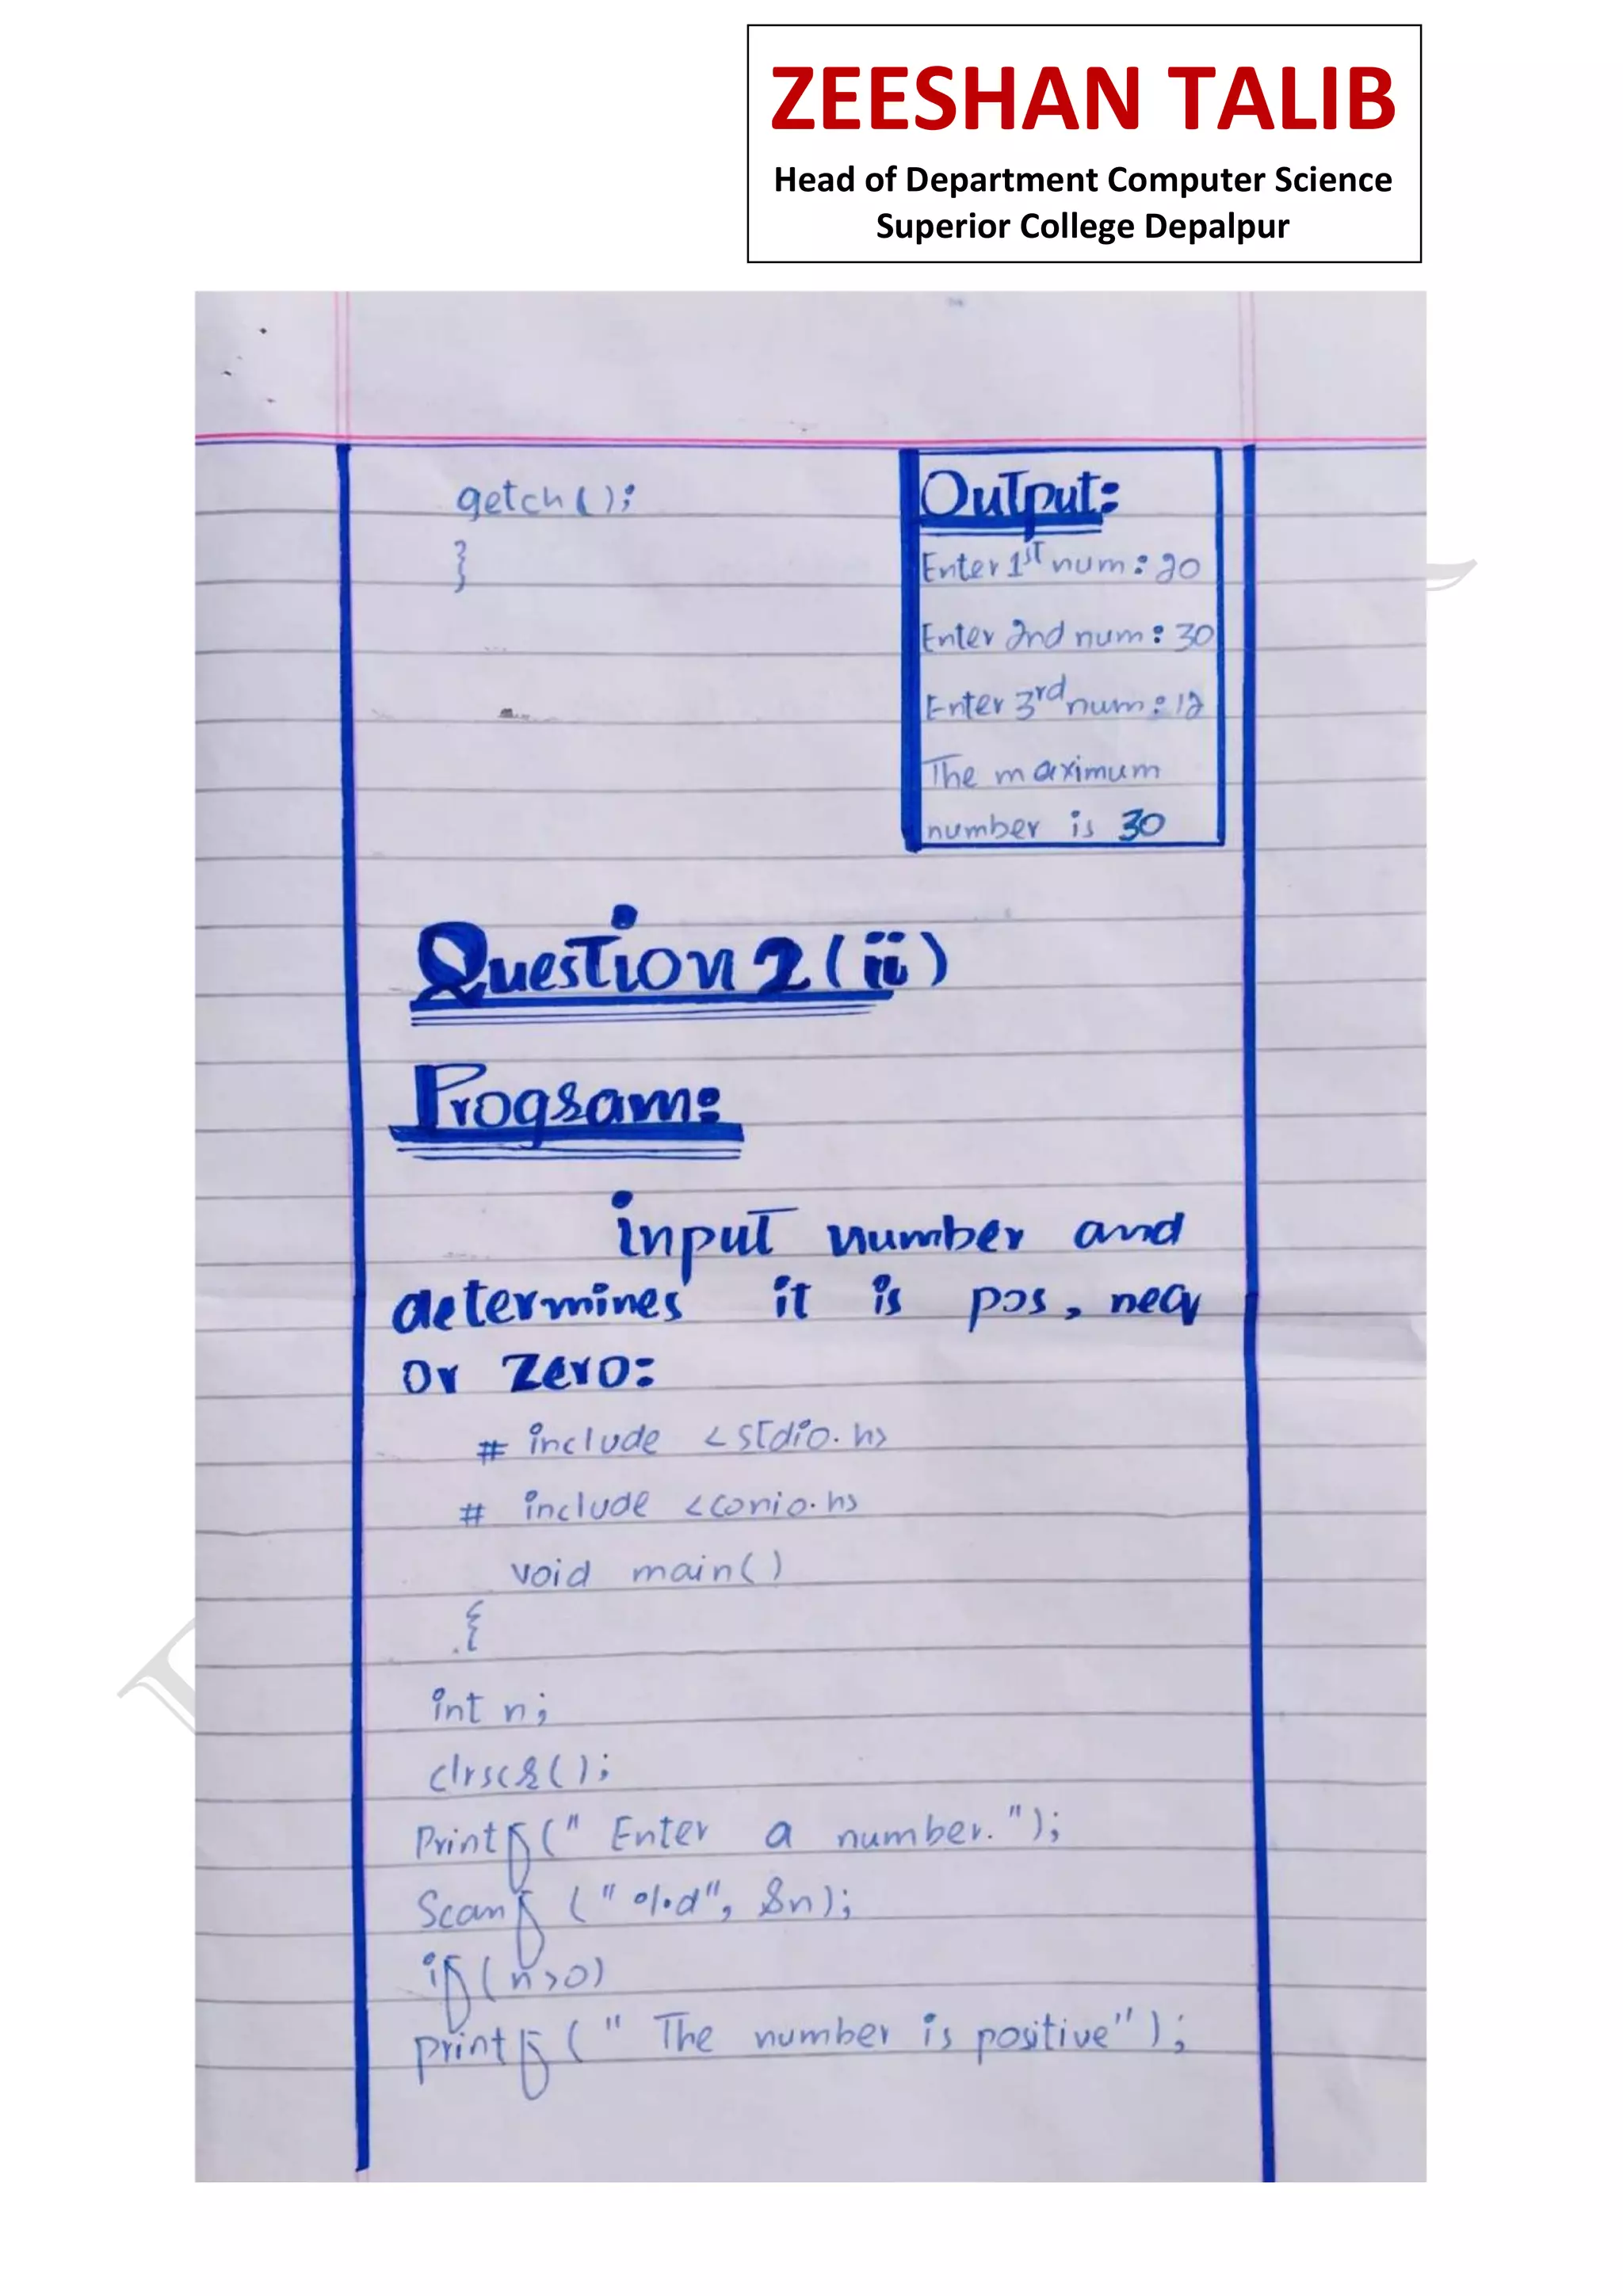 ZEESHAN TALIB
Head of Department Computer Science
Superior College Depalpur
getch();
}
Output:
Enter 1st num: 20
Enter 2nd num: 30
Enter 3rd num: 12
The maximum
number is 30
Question 2 (ii)
Program:
input number and
determines it is pos, neg
or zero:
# include <stdio.h>
# include <conio.h>
void main()
{
int n;
clrscr();
Printf(" Enter a number.");
Scanf ("%d", &n);
if(n>0)
printf (" The number is positive");